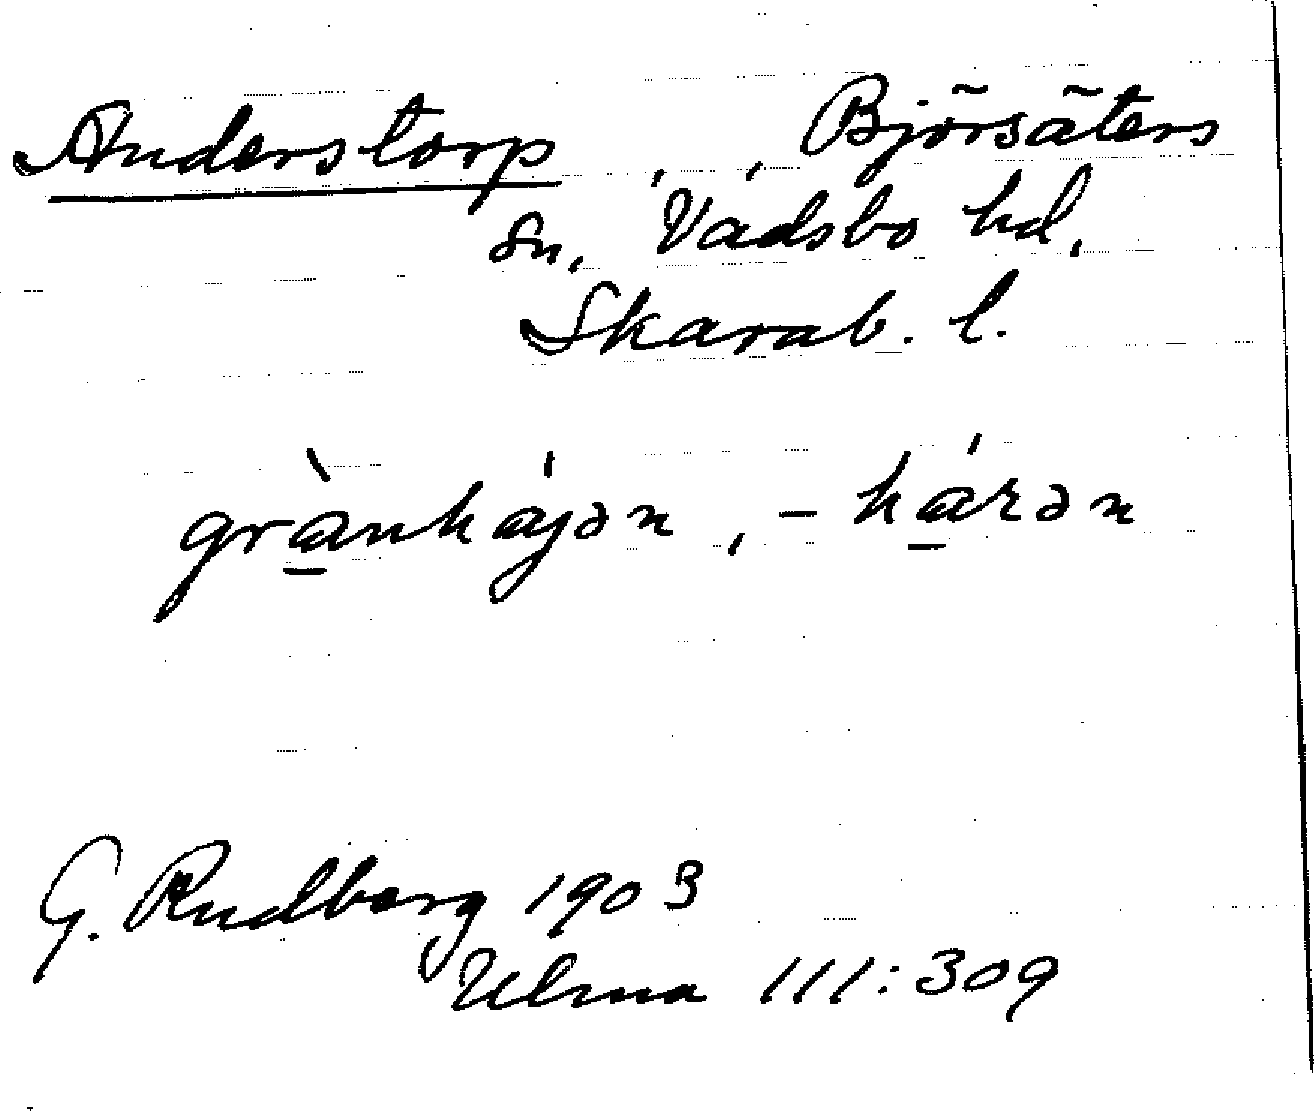 Anderstorp , , Björsäters
Sn, Vadsbo hd,
Skarab. l.
grànhájən, - hárən
G. Rudberg 1903
Ulma 111:309